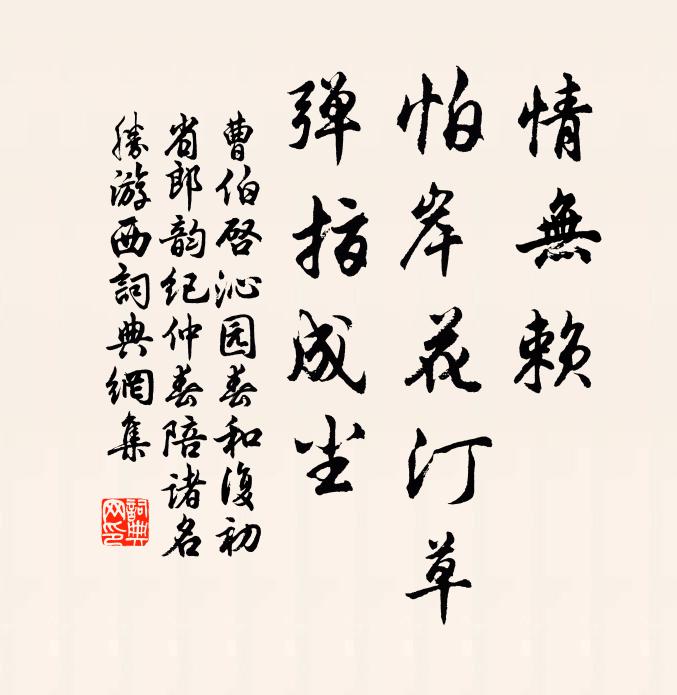 情無赖
怕岸花汀草
弹指成尘
曹伯啓沁园春和復初
省郎韵纪仲春陪诸名
勝游西詞典網集
詞典
网印